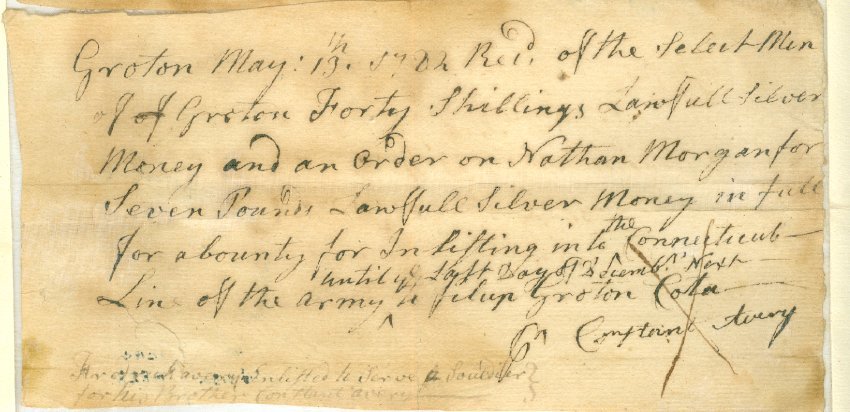 Groton May: 13th. 1782 Recd. of the Select Men
of of Groton Forty Shillings Lawfull Silver
Money and an Order on Nathan Morgan for
Seven Pounds Lawfull Silver Money in full
for a bounty for Inlisting into the Connecticut
until ye Last Day of Decembr. Next
Line of the army to filup Groton Cota
Comstaint Avery
avery Inlisted to Serve a Souldier
for his Brother avery